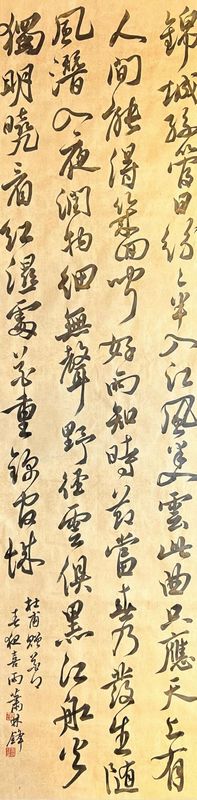 錦城絲管日紛々半入江風半入雲此曲只應天上有
人間能得幾回聞好雨知時節當春乃發生隨
風潛入夜潤物細無聲野徑雲俱黑江船火
獨明曉看紅濕處花重錦官城
杜甫贈花卿
春夜喜雨蕭林鋒